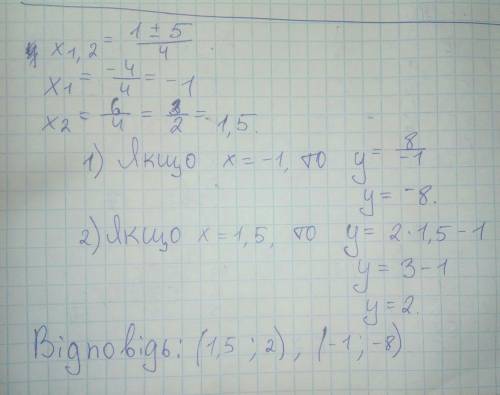 x₁,₂ = (1 ± 5)/4
x₁ = -4/4 = -1
x₂ = 6/4 = 3/2 = 1,5.
1) Якщо x = -1, то y = 8/-1
y = -8.
2) Якщо x = 1,5, то y = 2·1,5 - 1
y = 3 - 1
y = 2.
Відповідь: (1,5 ; 2), (-1 ; -8)